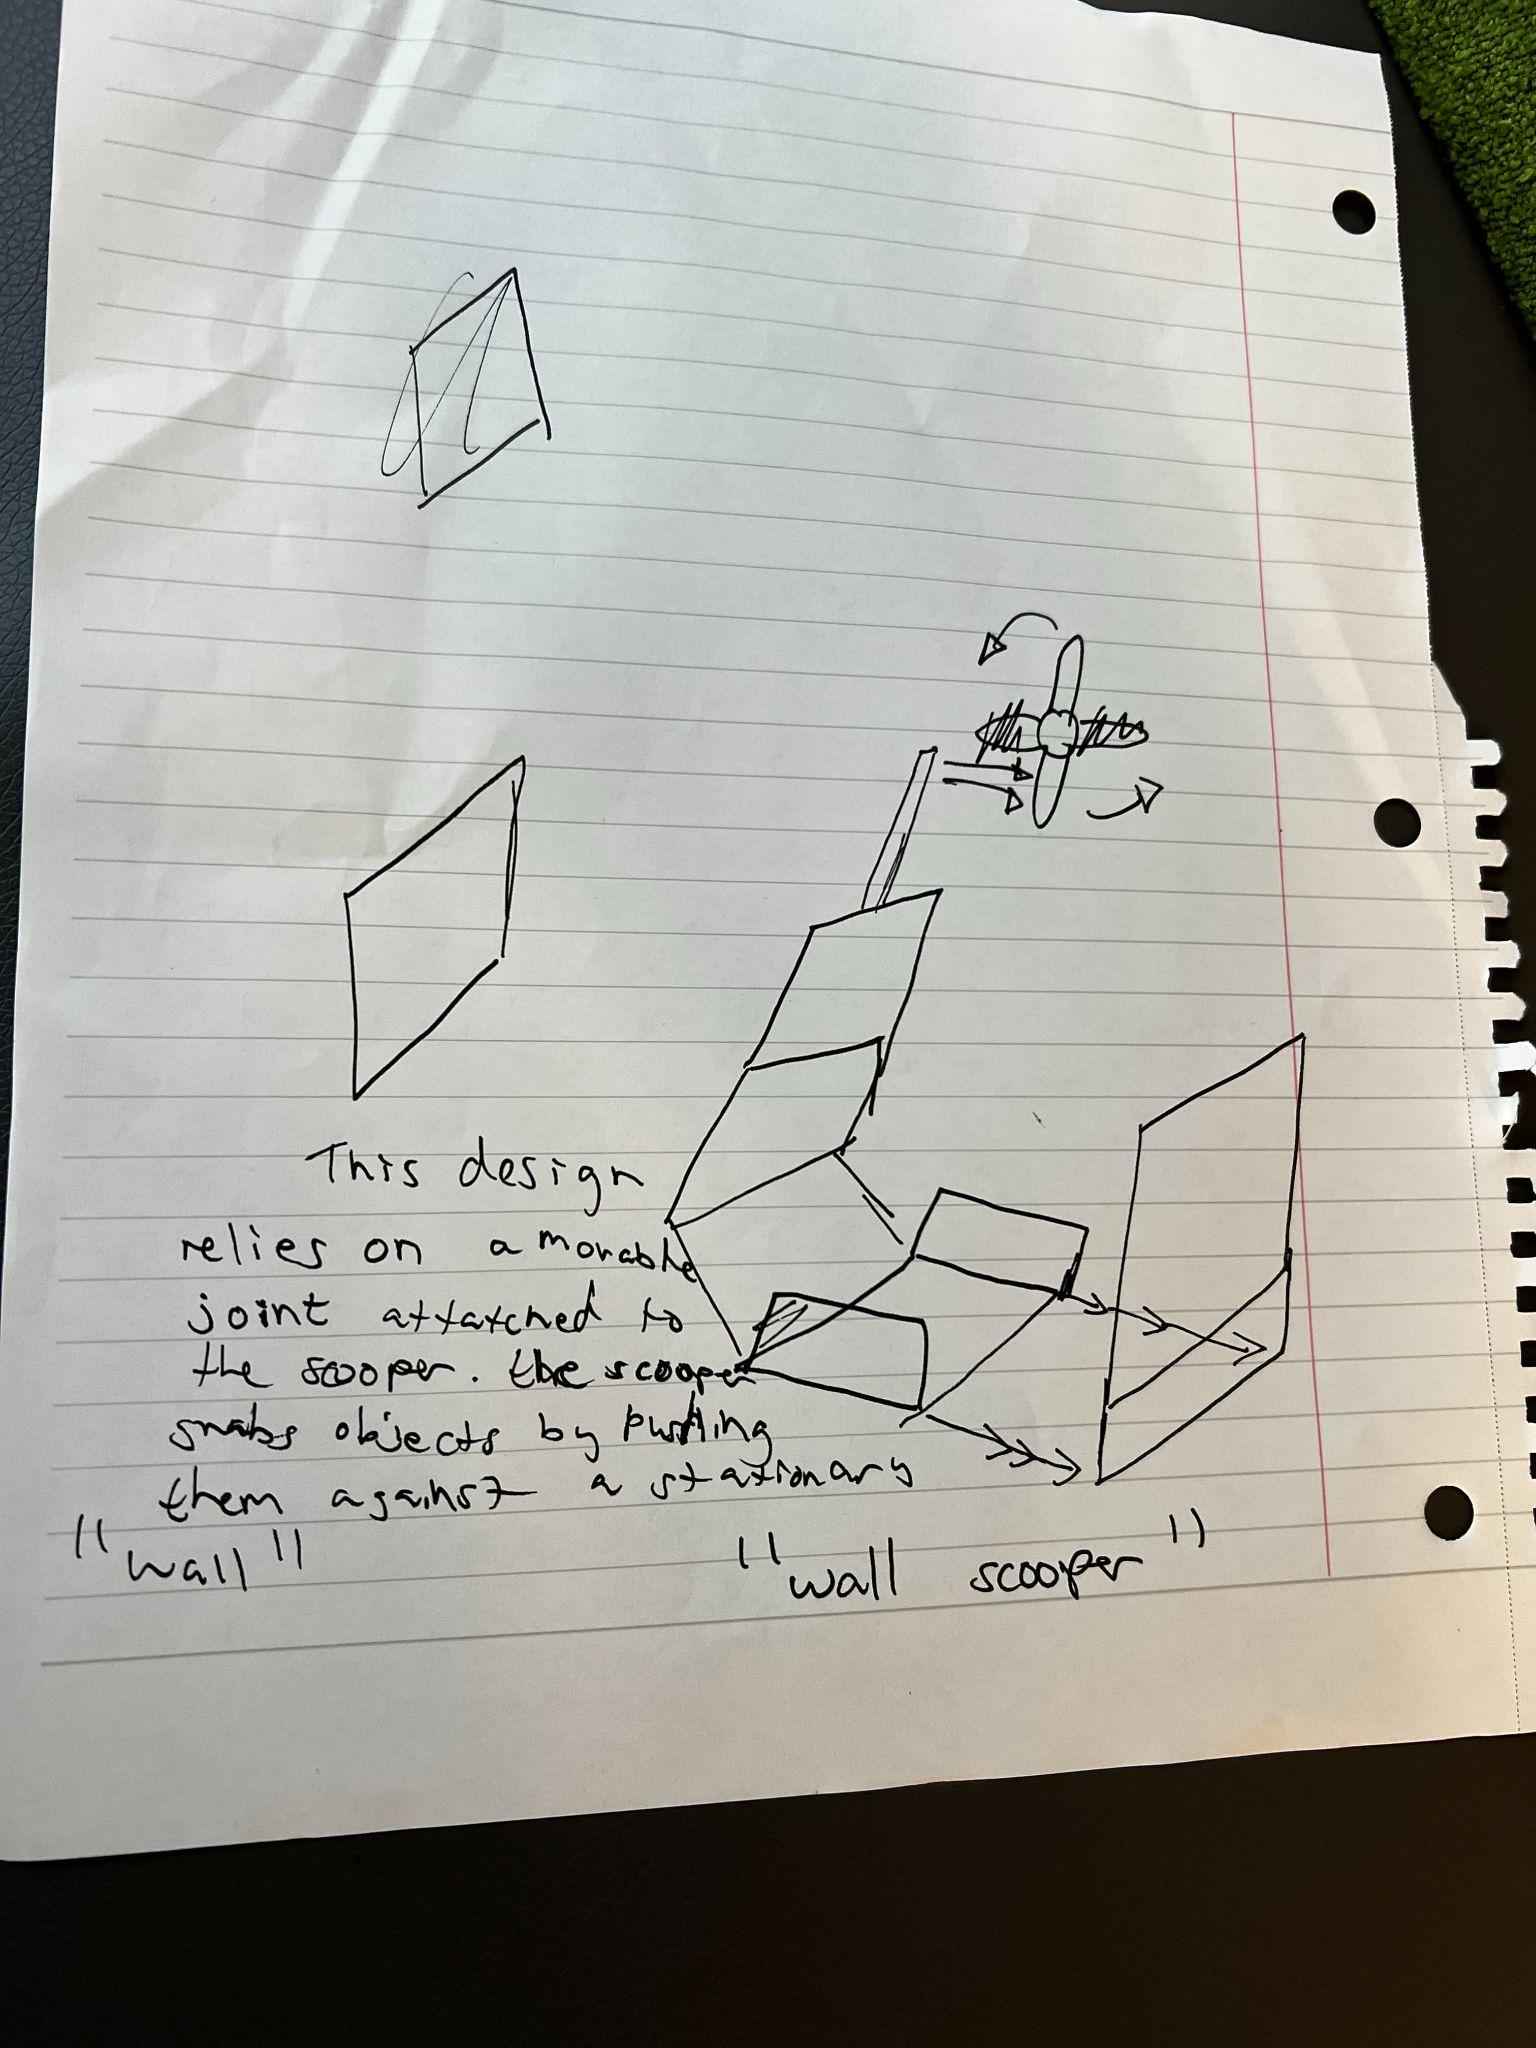 This design
relies on a movable
joint attatched to
the scooper. the scooper
grabs objects by pushing
them against a stationary
"wall"
"wall scooper"